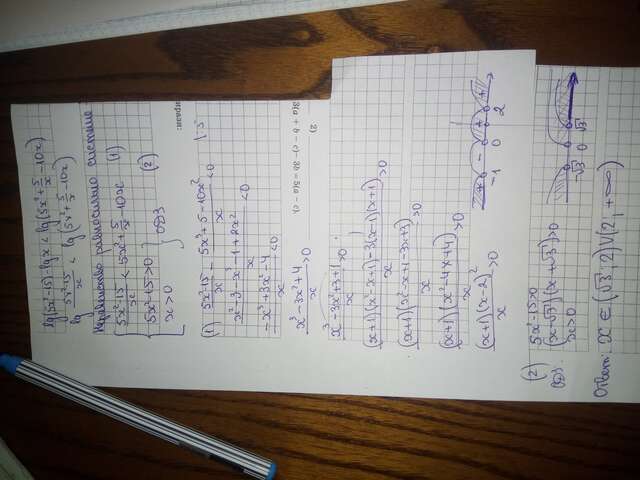 lg(5x²-15)-lg x < lg(5x²+5/x-10x)
lg (5x²-15)/x < lg(5x²+5/x-10x)
Неравенство равносильно системе
{ (5x²-15)/x < 5x²+5/x-10x (1)
5x²-15>0 } ОДЗ (2)
x>0
(1) (5x²-15)/x - (5x³+5-10x²)/x <0 |:5
(x²-3-x³-1+2x²)/x <0
(-x³+3x²-4)/x <0
(x³-3x²+4)/x >0
(x³-3x²+3+1)/x >0
((x+1)(x²-x+1)-3(x-1)(x+1))/x >0
((x+1)(x²-x+1-3x+3))/x >0
((x+1)(x²-4x+4))/x >0
((x+1)(x-2)²)/x >0
+ - + +
-1 0 2
(2) 5x²-15>0
ОДЗ (x-√3)(x+√3)>0
x>0
-√3 0 √3
Ответ: x∈(√3;2)∪(2;+∞)
2)